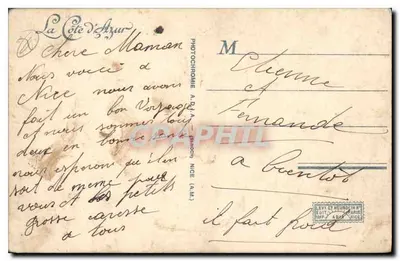 La Côte d'Azur
Chère Maman
Nous voici à
Nice nous avons
fait un bon voyage
et nous sommes tous
deux en bonne santé
nous esperons qu'il en
soit de meme pour
vous et les petits
grosse caresse
à tous
PHOTOCHROMIE A.D.I.A. NICE (A.M.)
M
Etienne
et
Fernande
a bientot
il fait froid
DELCAMPHIL